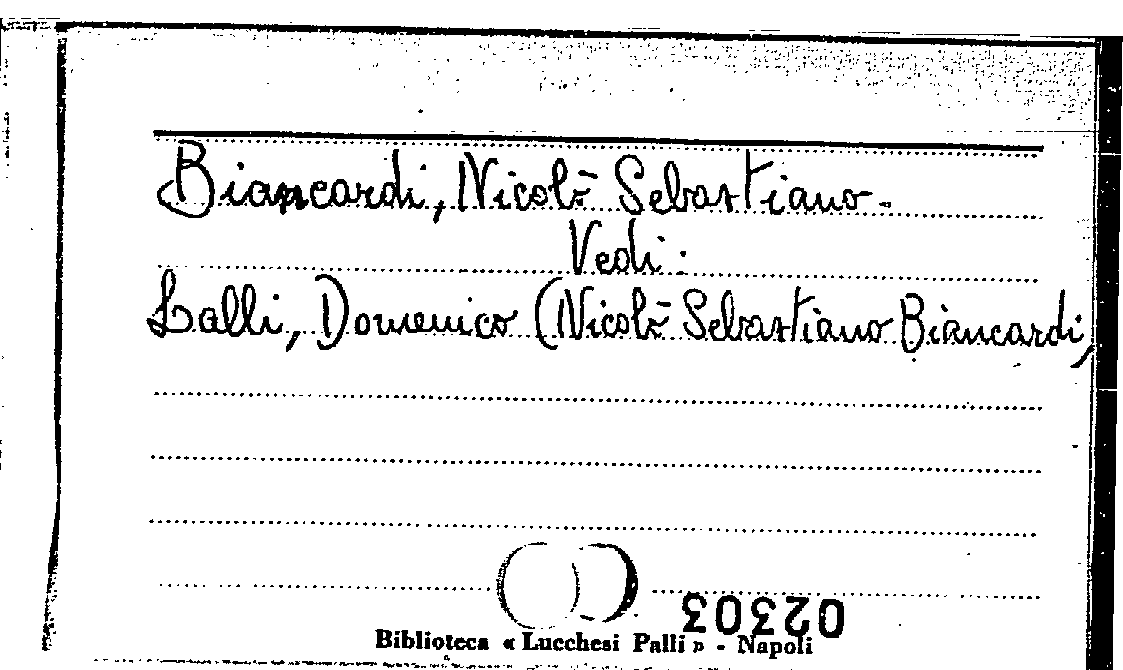 Biancardi, Nicolò Sebastiano.
Vedi:
Lalli, Domenico (Nicolò Sebastiano Biancardi)
02303
Biblioteca « Lucchesi Palli » - Napoli